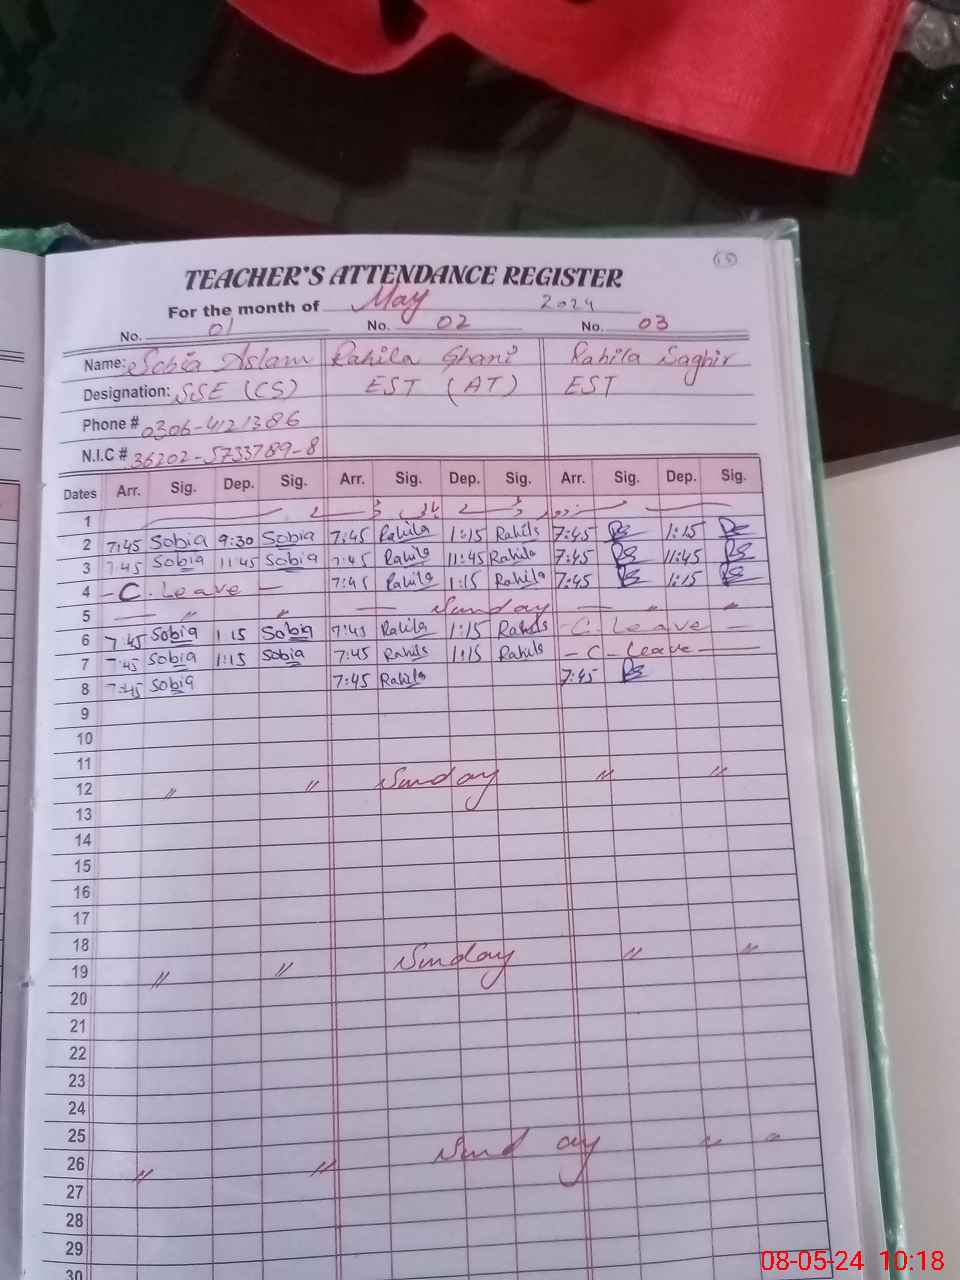 15
TEACHER'S ATTENDANCE REGISTER
For the month of May 2024
No. 01 No. 02 No. 03
Name: Sobia Aslam Rahila Ghani Rahila Saghir
Designation: SSE (CS) EST (AT) EST
Phone # 0306-4121386
N.I.C # 36202-5733789-8
Dates Arr. Sig. Dep. Sig. Arr. Sig. Dep. Sig. Arr. Sig. Dep. Sig.
1
2 7:45 Sobia 9:30 Sobia 7:45 Rahila 1:15 Rahila 7:45 RS 1:15 RS
3 7:45 Sobia 11:45 Sobia 7:45 Rahila 11:45 Rahila 7:45 RS 11:45 RS
4 - C. Leave - 7:45 Rahila 1:15 Rahila 7:45 RS 1:15 RS
5 — " " — Sunday — " "
6 7:45 Sobia 1:15 Sobia 7:45 Rahila 1:15 Rahila - C. Leave -
7 7:45 Sobia 1:15 Sobia 7:45 Rahila 1:15 Rahila - C - Leave -
8 7:45 Sobia 7:45 Rahila 7:45 RS
9
10
11
12 " " Sunday " "
13
14
15
16
17
18
19 " " Sunday " "
20
21
22
23
24
25
26 " " Sunday " "
27
28
29
30
08-05-24 10:18